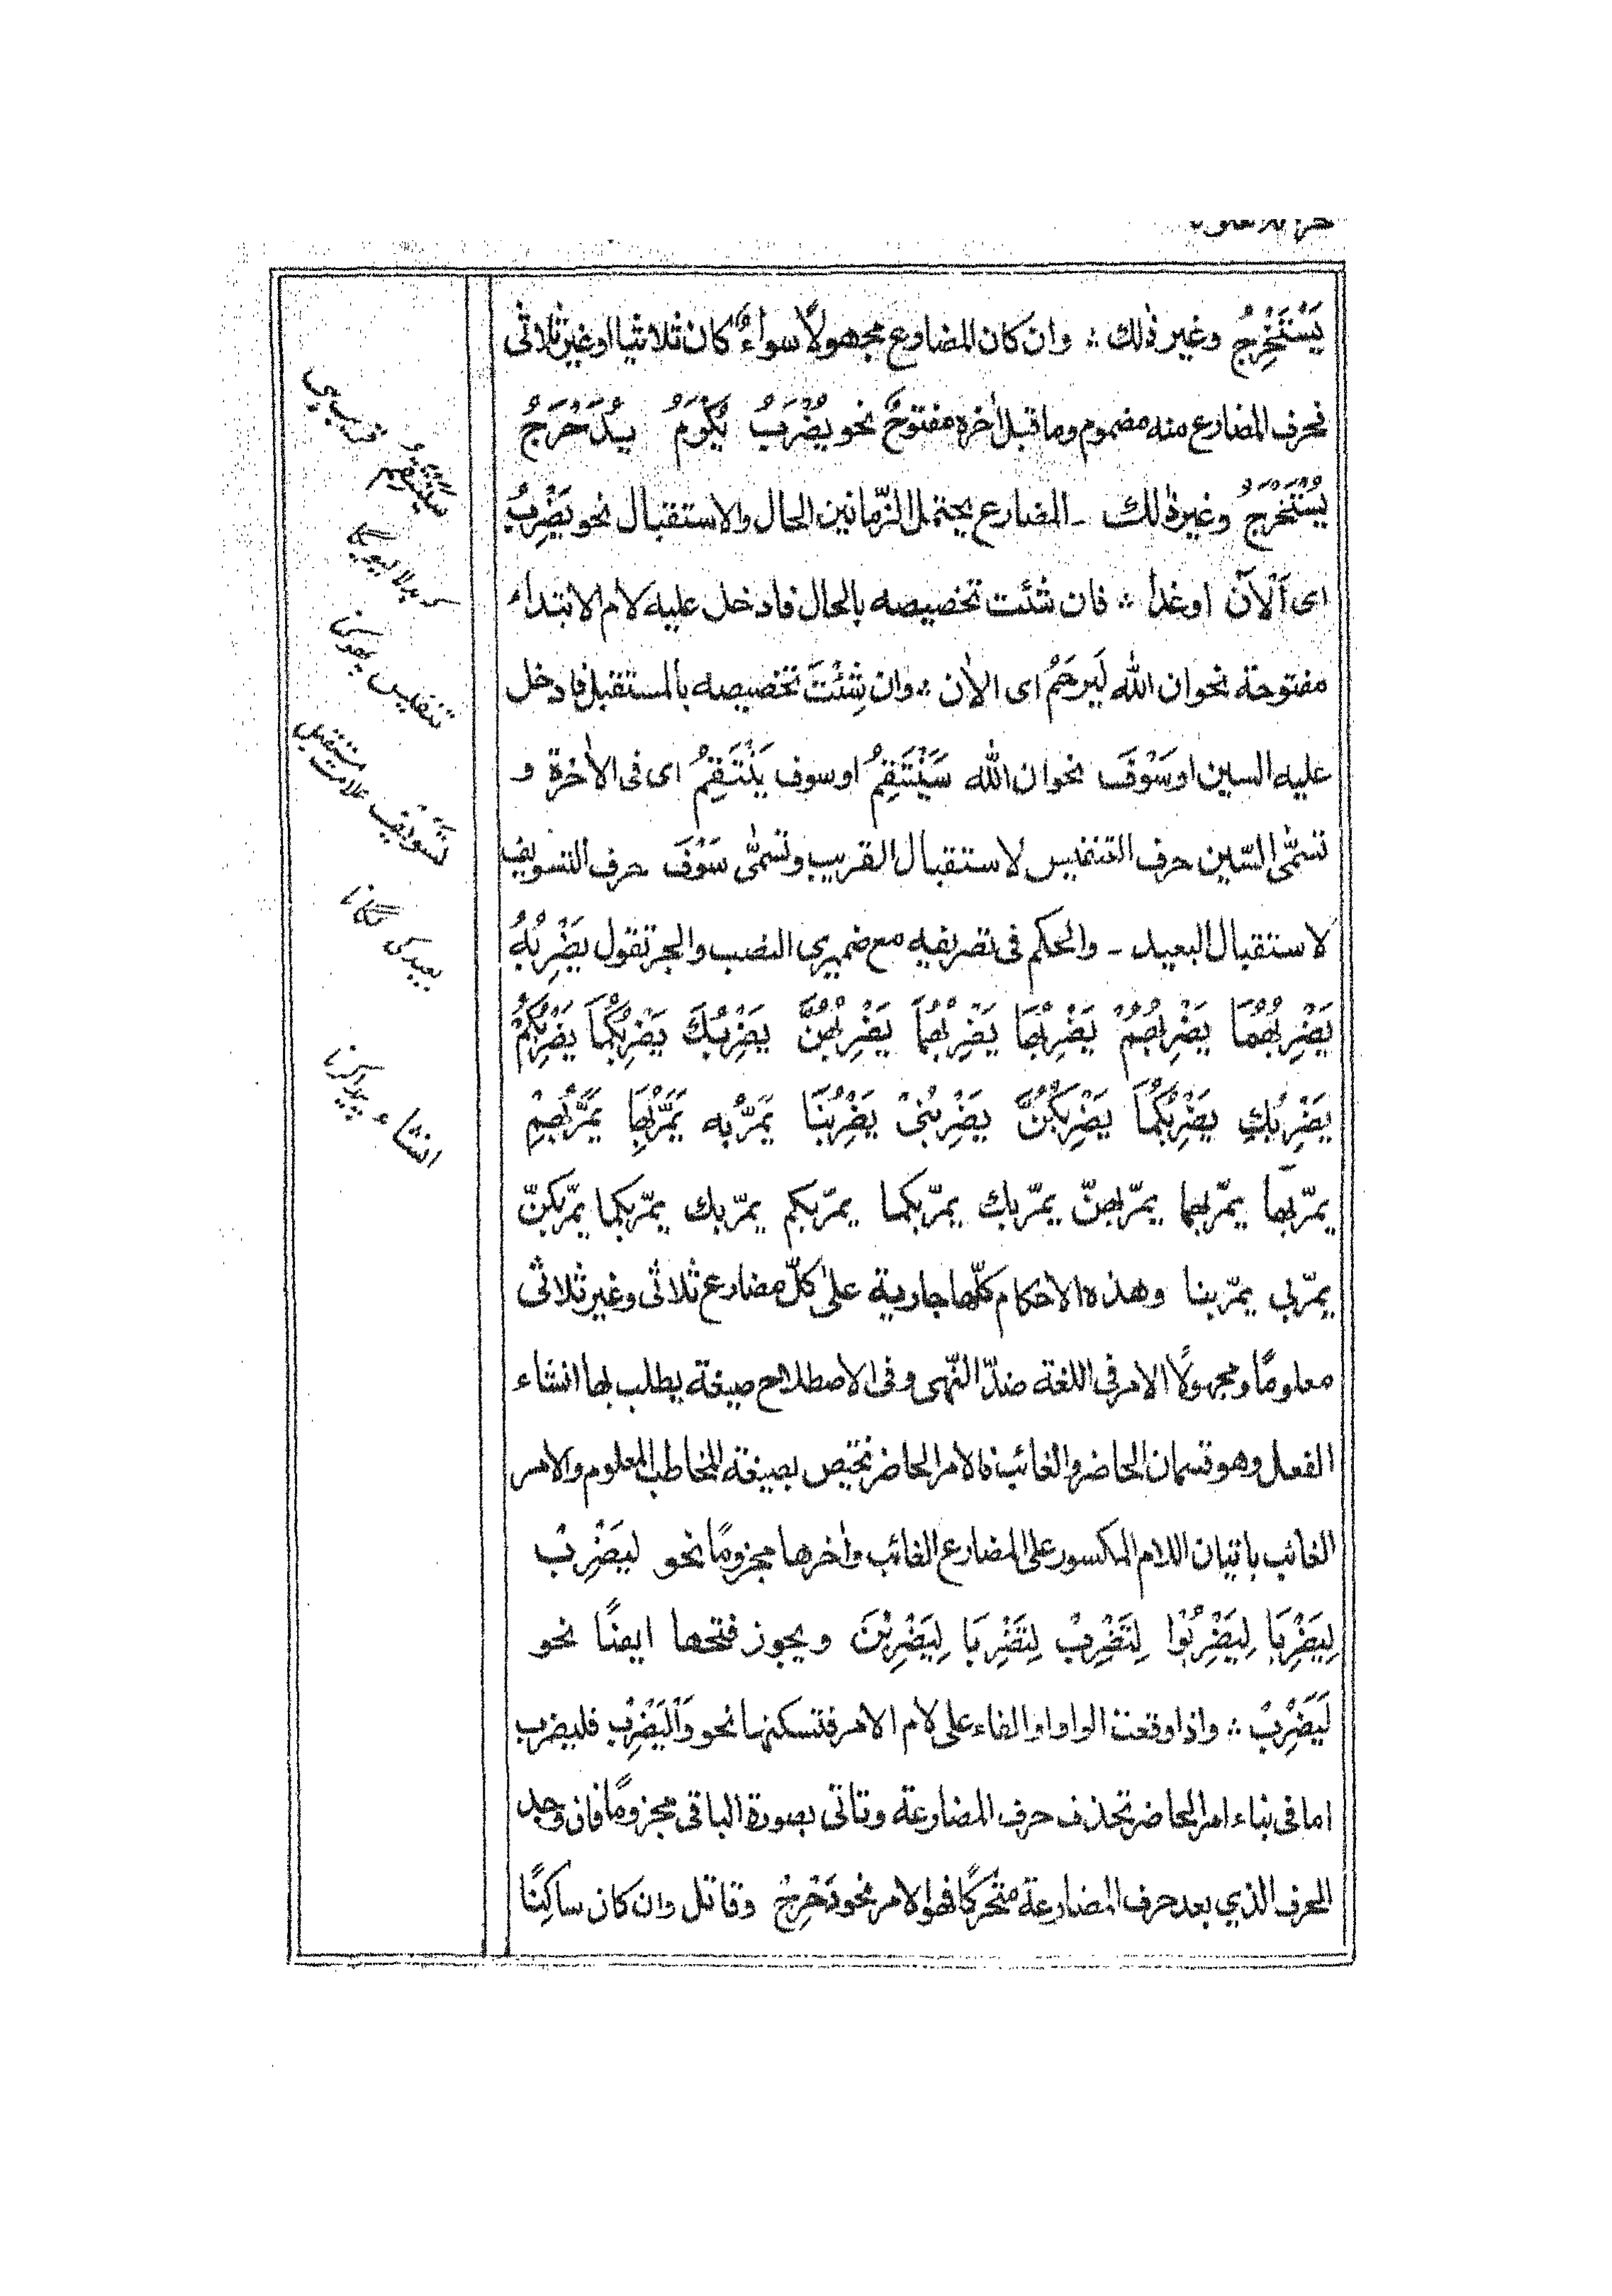 يَسْتَخْرِجُ وغير ذٰلك ؞ وان كان المضارع مجهولًا سواءٌ كان ثلاثيا اوغير ثلاثى
فحرف المضارع منه مضموم وما قبل اٰخره مفتوحٌ نحو يُضْرَبُ يُكْرَمُ يُدَحْرَجُ
يُسْتَخْرَجُ وغير ذٰلك ـ المضارع يحتمل الزّمانين الحال والاستقبال نحو يَضْرِبُ
اى اَلْاٰنَ اوغدا ؞ فان شئت تخصيصه بالحال فادخل عليه لام الابتداء
مفتوحة نحو ان الله لَيرحَمُ اى الاٰن ؞ وان شِئْتَ تخصيصه بالمستقبل فادخل
عليه السين اوسَوْفَ نحو ان الله سَيَنْتَقِمُ اوسوف يَنْتَقِمُ اى فى الاٰخرة و
تسمّٰى السّين حرف التنفيس لاستقبال القريب وتسمّٰى سَوْفَ حرف التسويف
لاستقبال البعيد ـ والحكم فى تصريفيه مع ضميرى النصب والجر تقول يَضْرِبُهُ
يَضْرِبُهُمَا يَضْرِبُهُمْ يَضْرِبُهَا يَضْرِبُهُمَا يَضْرِبُهُنَّ يَضْرِبُكَ يَضْرِبُكُمَا يَضْرِبُكُمْ
يَضْرِبُكِ يَضْرِبُكُمَا يَضْرِبُكُنَّ يَضْرِبُنِىْ يَضْرِبُنَا يَمُرُّبِه يَمُرُّبِهِمَا يَمُرُّبِهِمْ
يمرّبها يمرّبهما يمرّبهنّ يمرّبك يمرّبكما يمرّبكم يمرّبك يمرّبكما يمرّبكنّ
يمرّبي يمرّبنا وهذه الاحكام كلّها جارية علىٰ كلّ مضارع ثلاثى وغير ثلاثى
معلومًا ومجهولًا الامر فى اللغة ضدّ النّهى وفى الاصطلاح صيغة يطلب بها انشاء
الفعل وهو قسمان الحاضر والغائب فالامر الحاضر تختص بصيغة المخاطب المعلوم والامر
الغائب باتيان اللام المكسور على المضارع الغائب واٰخرها مجزومًا نحو ليَضْرِبْ
لِيَضْرِبَا لِيَضْرِبُوْا لِتَضْرِبْ لِتَضْرِبَا لِيَضْرِبْنَ ويجوز فتحها ايضًا نحو
لَيَضْرِبْ ؞ واذا وقعت الواو او الفاء على لام الامر فتسكنها نحو وَلْيَضْرِبْ فليضرب
اما فى بناء امر الحاضر تحذف حرف المضارعة وتاتى بصورة الباقى مجزومًا فان وجد
الحرف الذي بعد حرف المضارعة متحركًا فهو الامر نحو دَحْرِجْ وقاتل وان كان ساكِنًا
تنفيس
تَسْوِيْف علامت مستقبل
بعيد كى
انشاء پيدا كرنا